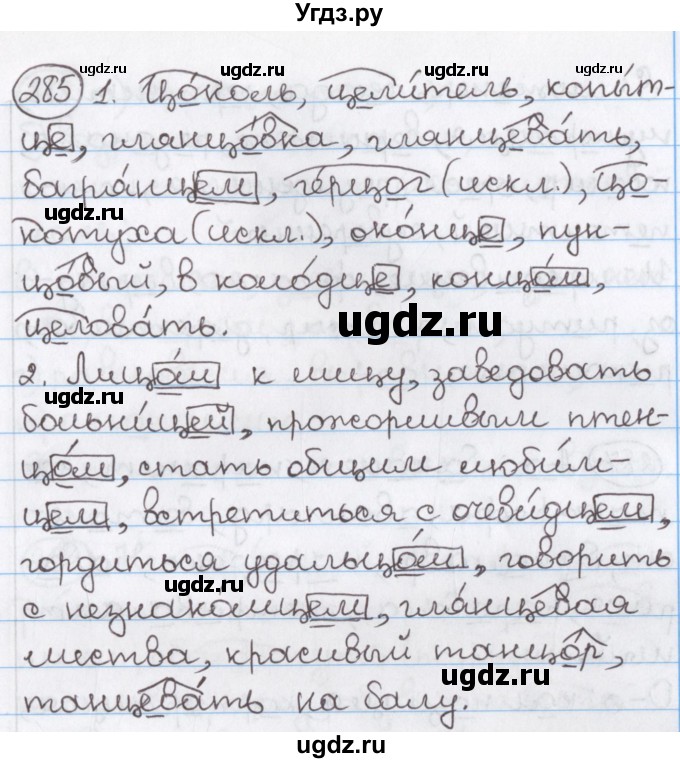 Угдз.ру
ugdz.ru ugdz.ru ugdz.ru
285 1. Цо́коль, цели́тель, копы́т-
це, глянцо́вка, глянцева́ть,
багря́нцем, ге́рцог (искл.), цо-
ugdz.ru
котуха (искл.), око́нце, пун-
цо́вый, в коло́дце, концо́м,
целова́ть.
ugdz.ru
2. Лицо́м к лицу, заведовать
ugdz.ru
больни́цей, прожорливым птен-
цо́м, стать общим люби́м-
цем, встретиться с очеви́дцем,
гордиться удальцо́м, говорить
ugdz.ru
с незнакомцем, гля́нцевая
ugdz.ru
листва, красивый танцо́р,
танцева́ть на балу.
ugdz.ru